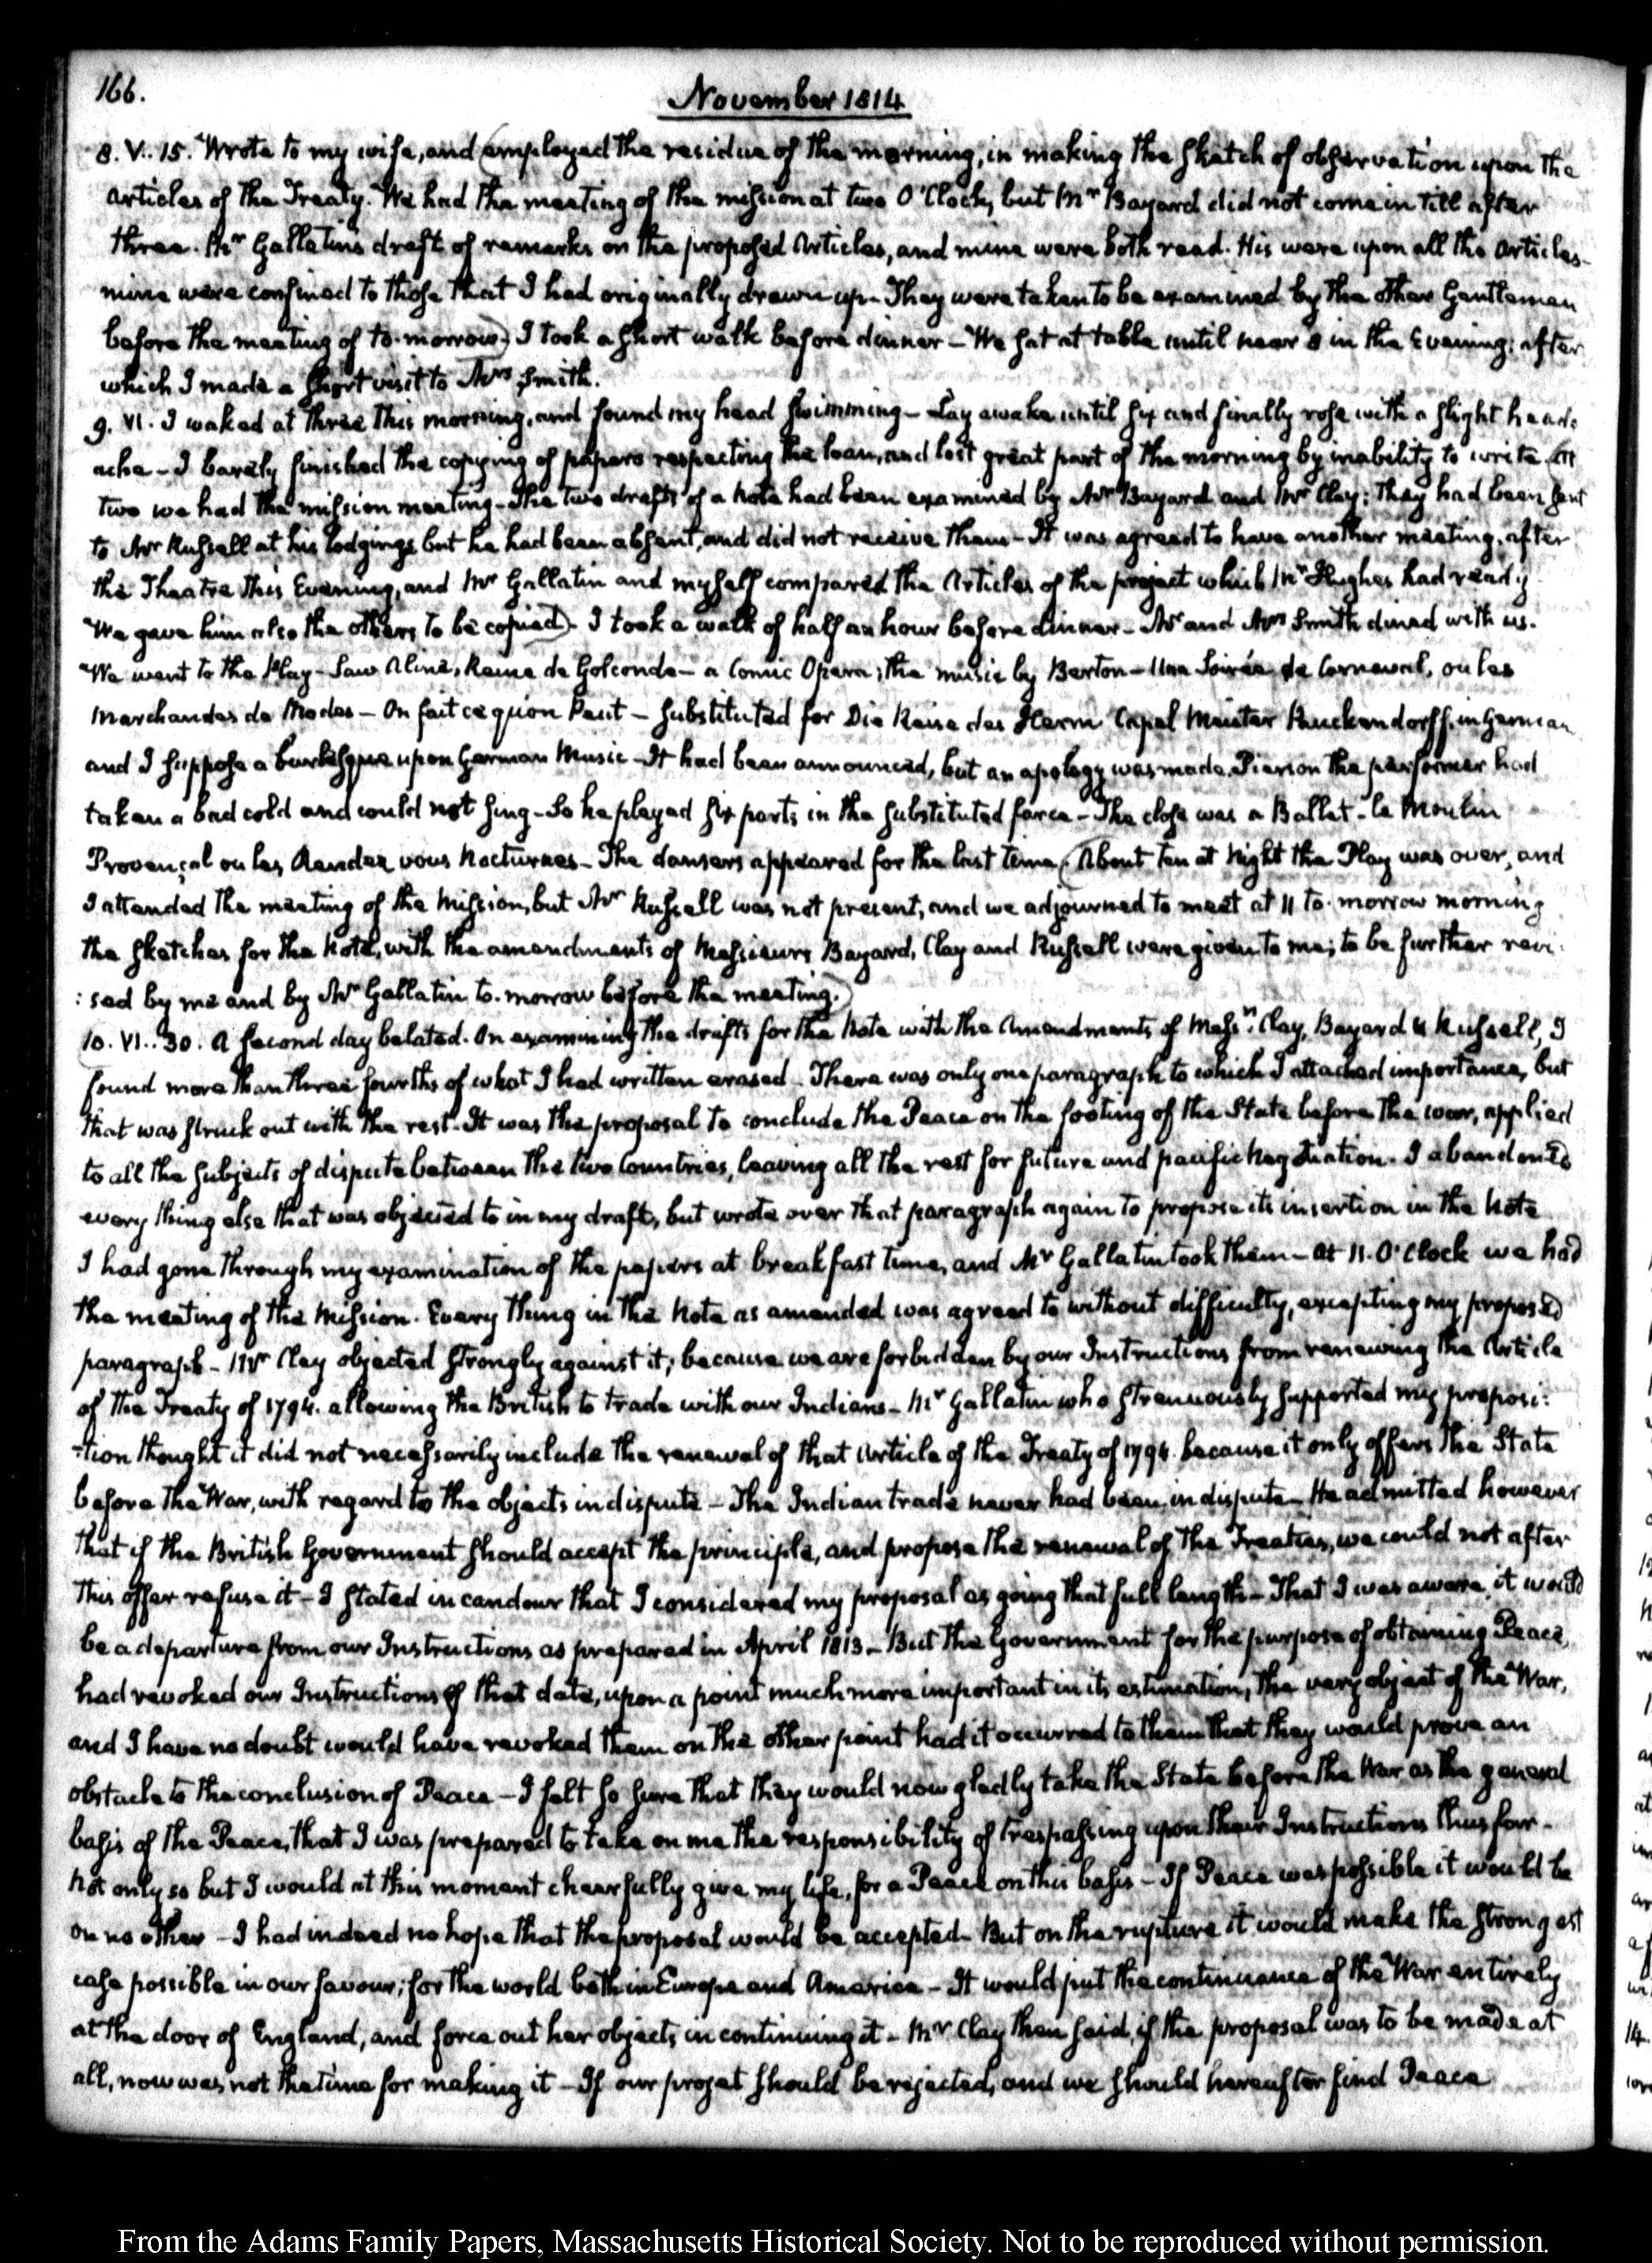 166.
November 1814
8. V.. 15. Wrote to my wife, and (employed the residue of the morning, in making the sketch of observation upon the
articles of the Treaty. We had the meeting of the mission at two O'Clock, but Mr Bayard did not come in till after
three. Mr Gallatins draft of remarks on the proposed Articles, and mine were both read. His were upon all the articles—
mine were confined to those that I had originally drawn up— They were taken to be examined by the other Gentlemen
before the meeting of to-morrow) I took a short walk before dinner— We sat at table until near 8 in the Evening: after
which I made a short visit to Mrs Smith.
9. VI. I waked at three this morning, and found my head swimming— Lay awake until six and finally rose with a slight head-
ache— I barely finished the copying of papers respecting the loan, and lost great part of the morning by inability to write (At
two we had the mission meeting— The two drafts of a Note had been examined by Mr Bayard and Mr Clay: They had been sent
to Mr Russell at his lodgings but he had been absent, and did not receive them— It was agreed to have another meeting, after
the Theatre this Evening, and Mr Gallatin and myself compared the Articles of the project which Mr Hughes had ready
We gave him also the others to be copied)— I took a walk of half an hour before dinner— Mr and Mrs Smith dined with us.
We went to the Play— Saw Aline, Reine de Golconde— a Comic Opera; the music by Berton— Une Soirée de Carnaval, ou les
Marchandes de Modes— On fait ce qu'on Peut— substituted for Die Reise des Herrn Capel Meister Puckendorff, in German
and I suppose a burlesque upon German Music— It had been announced, but an apology was made. Pierson the performer had
taken a bad cold and could not sing— So he played six parts in the substituted farce— The close was a Ballet— le Moulin
Provençal ou les Rendez vous Nocturnes— The dansers appeared for the last time. (About ten at Night the Play was over, and
I attended the meeting of the Mission, but Mr Russell was not present, and we adjourned to meet at 11 to-morrow morning
the sketches for the Note, with the amendments of Messieurs Bayard, Clay and Russell were given to me; to be further revi-
:sed by me and by Mr Gallatin to-morrow before the meeting.)
10. VI.. 30. A second day belated. On examining the drafts for the Note with the Amendments of Messrs Clay, Bayard & Russell, I
found more than three fourths of what I had written erased— There was only one paragraph to which I attached importance, but
that was struck out with the rest. It was the proposal to conclude the Peace on the footing of the State before the war, applied
to all the subjects of dispute between the two Countries, leaving all the rest for future and pacific Negotiation. I abandoned
every thing else that was objected to in my draft, but wrote over that paragraph again to propose its insertion in the Note
I had gone through my examination of the papers at breakfast time, and Mr Gallatin took them— At 11. O'Clock we had
the meeting of the Mission. Every thing in the Note as amended was agreed to without difficulty, excepting my proposed
paragraph— Mr Clay objected strongly against it; because we are forbidden by our Instructions from renewing the Article
of the Treaty of 1794. allowing the British to trade with our Indians— Mr Gallatin who strenuously supported my proposi:
-tion thought it did not necessarily include the renewal of that Article of the Treaty of 1794. because it only offers the State
before the War, with regard to the objects in dispute— The Indian trade never had been in dispute— He admitted however
that if the British Government should accept the principle, and propose the renewal of the Treaties, we could not after
this offer refuse it— I stated in candour that I considered my proposal as going that full length— That I was aware it would
be a departure from our Instructions as prepared in April 1813— But the Government for the purpose of obtaining Peace
had revoked our Instructions of that date, upon a point much more important in its estimation, the very object of the War,
and I have no doubt would have revoked them on the other point had it occurred to them that they would prove an
obstacle to the conclusion of Peace— I felt so sure that they would now gladly take the State before the War as the general
basis of the Peace, that I was prepared to take on me the responsibility of trespassing upon their Instructions thus far—
Not only so but I would at this moment cheerfully give my life, for a Peace on this basis— If Peace was possible it would be
on no other— I had indeed no hope that the proposal would be accepted— But on the rupture it would make the strongest
case possible in our favour; for the world both in Europe and America— It would put the continuance of the War entirely
at the door of England, and force out her objects in continuing it— Mr Clay then said, if the proposal was to be made at
all, now was not the time for making it— If our projet should be rejected, and we should hereafter find Peace
From the Adams Family Papers, Massachusetts Historical Society. Not to be reproduced without permission.